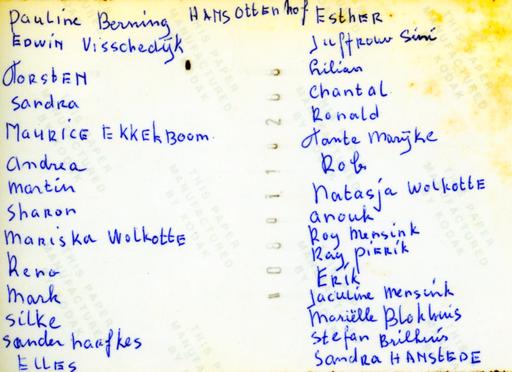 Pauline Berning HANS Ottenhof Esther
Edwin Visschedijk
Juffrouw Sini
Torsten
Lilian
Sandra
Chantal
Ronald
Maurice Ekkelboom.
Tante Marijke
Andrea
Rob
Martin
Natasja Wolkotte
Sharon
Anouk
Mariska Wolkotte
Roy Mensink
Ray Pierik
Reno
Erik
Mark
Jaculine Mensink
Silke
Mariëlle Blokhuis
Sander haafkes
Stefan Brilhuis
Elles
Sandra HANSTEDE